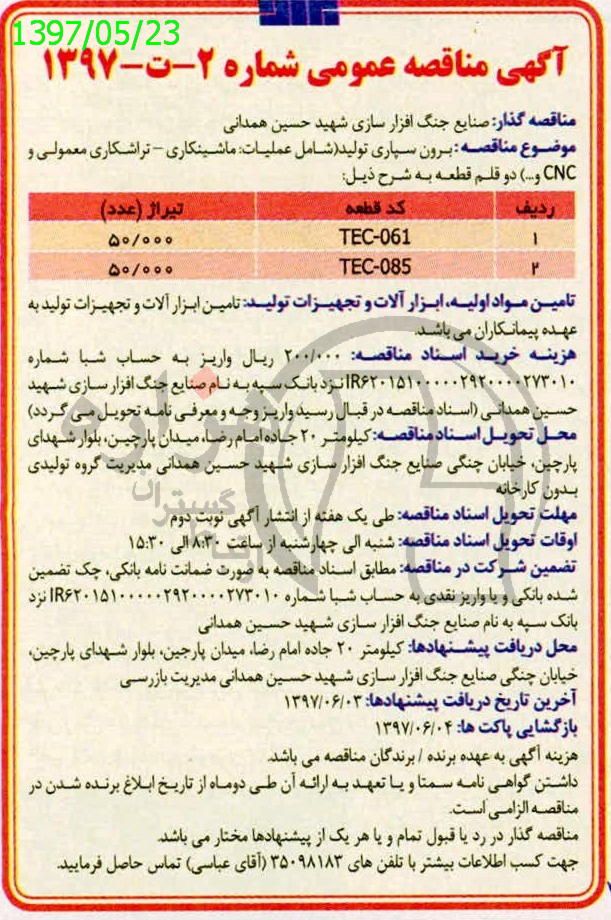 1397/05/23
آگهی مناقصه عمومی شماره ۲-ت-۱۳۹۷
مناقصه گذار: صنایع جنگ افزار سازی شهید حسین همدانی
موضوع مناقصه: برون سپاری تولید(شامل عملیات: ماشینکاری – تراشکاری معمولی و
CNC و...) دو قلم قطعه به شرح ذیل:
ردیف کد قطعه تیراژ (عدد)
۱ TEC-061 ۵۰/۰۰۰
۲ TEC-085 ۵۰/۰۰۰
تامین مواد اولیه، ابزار آلات و تجهیزات تولید: تامین ابزار آلات و تجهیزات تولید به
عهده پیمانکاران می باشد.
هزینه خرید اسناد مناقصه: ۲۰۰/۰۰۰ ریال واریز به حساب شبا شماره
IR۶۲۰۱۵۱۰۰۰۰۰۲۹۲۰۰۰۰۲۷۳۰۱۰ نزد بانک سپه به نام صنایع جنگ افزار سازی شهید
حسین همدانی (اسناد مناقصه در قبال رسید واریز وجه و معرفی نامه تحویل می گردد)
محل تحویل اسناد مناقصه: کیلومتر ۲۰ جاده امام رضا، میدان پارچین، بلوار شهدای
پارچین، خیابان چنگی صنایع جنگ افزار سازی شهید حسین همدانی مدیریت گروه تولیدی
بدون کارخانه
مهلت تحویل اسناد مناقصه: طی یک هفته از انتشار آگهی نوبت دوم
اوقات تحویل اسناد مناقصه: شنبه الی چهارشنبه از ساعت ۸:۳۰ الی ۱۵:۳۰
تضمین شرکت در مناقصه: مطابق اسناد مناقصه به صورت ضمانت نامه بانکی، چک تضمین
شده بانکی و یا واریز نقدی به حساب شبا شماره IR۶۲۰۱۵۱۰۰۰۰۰۲۹۲۰۰۰۰۲۷۳۰۱۰ نزد
بانک سپه به نام صنایع جنگ افزار سازی شهید حسین همدانی
محل دریافت پیشنهادها: کیلومتر ۲۰ جاده امام رضا، میدان پارچین، بلوار شهدای پارچین،
خیابان چنگی صنایع جنگ افزار سازی شهید حسین همدانی مدیریت بازرسی
آخرین تاریخ دریافت پیشنهادها: ۱۳۹۷/۰۶/۰۳
بازگشایی پاکت ها: ۱۳۹۷/۰۶/۰۴
هزینه آگهی به عهده برنده / برندگان مناقصه می باشد.
داشتن گواهی نامه سمتا و یا تعهد به ارائه آن طی دوماه از تاریخ ابلاغ برنده شدن در
مناقصه الزامی است.
مناقصه گذار در رد یا قبول تمام و یا هر یک از پیشنهادها مختار می باشد.
جهت کسب اطلاعات بیشتر با تلفن های ۳۵۰۹۸۱۸۳ (آقای عباسی) تماس حاصل فرمایید.
هزاره
گستران